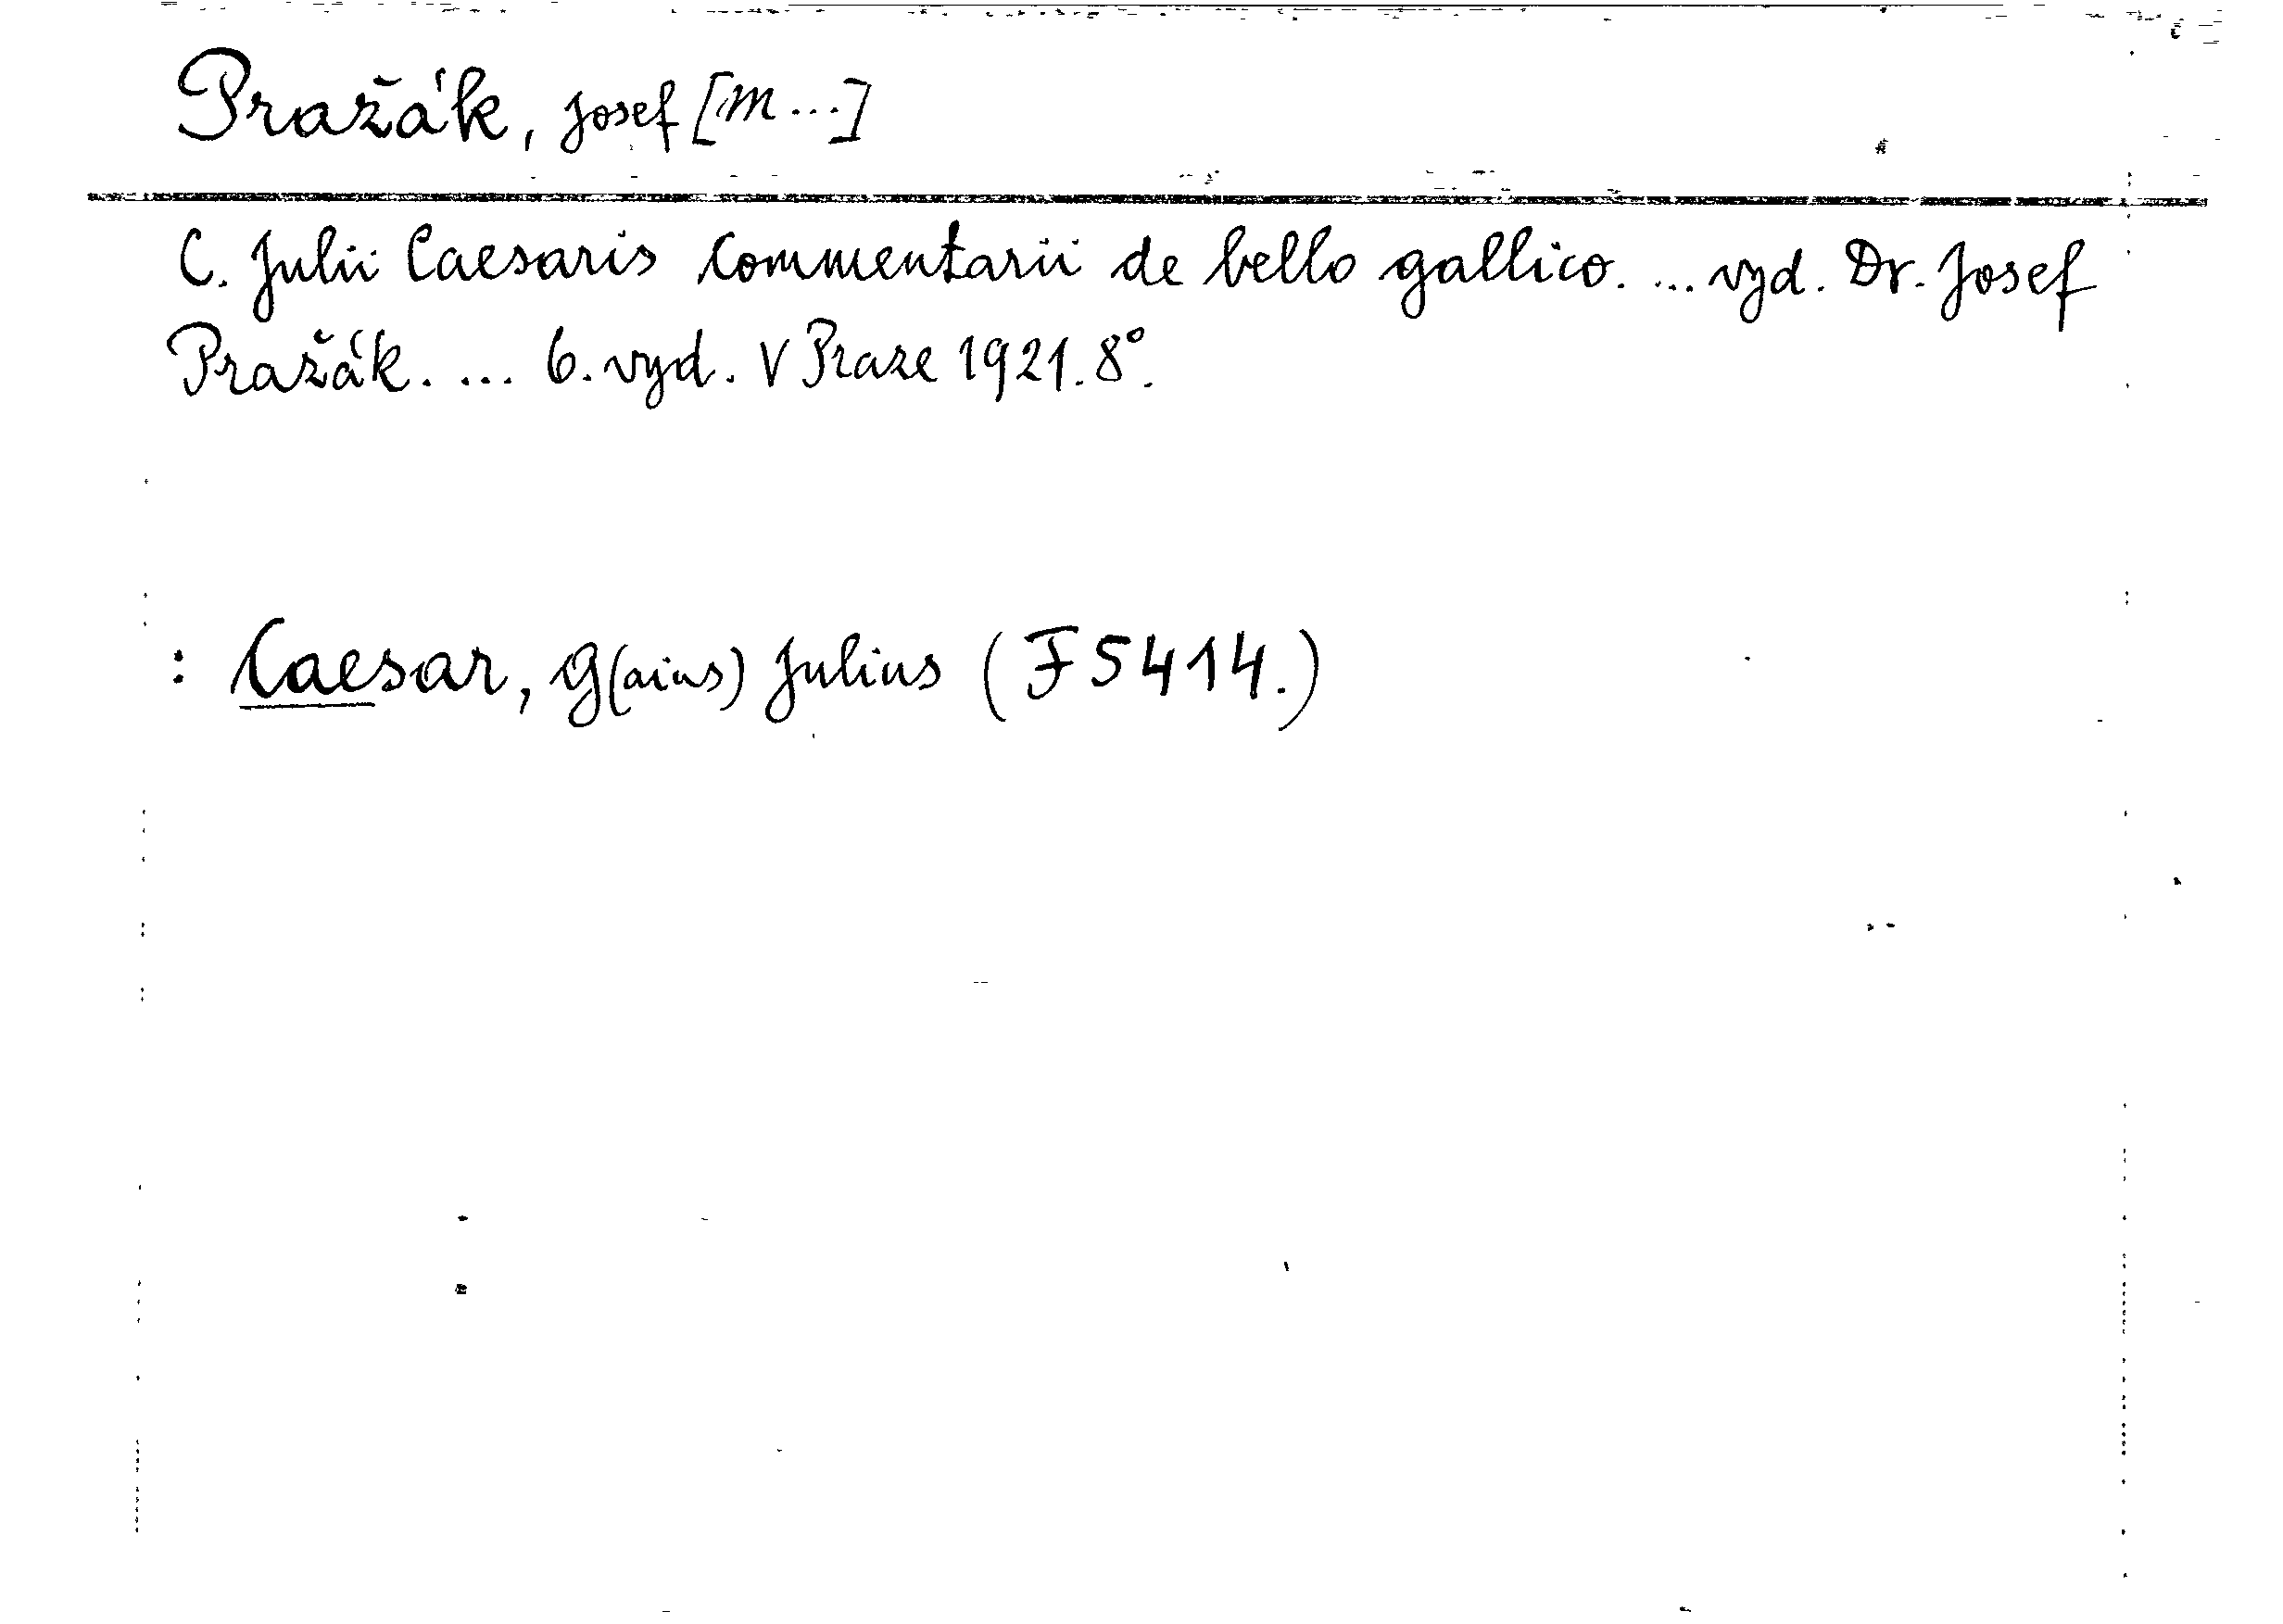 Pražák, Josef [M...]
C. Julii Caesaris Commentarii de bello gallico. ... vyd. Dr. Josef
Pražák. ... 6. vyd. V Praze 1921. 8°.
: Caesar, G(aius) Julius (F 5414.)